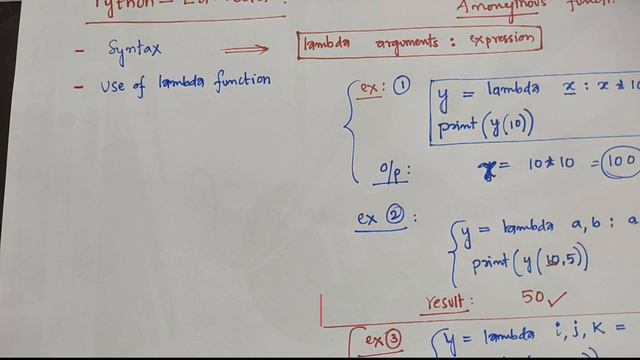 Python - Lambda :
Anonymous func
- Syntax ⟹ lambda arguments : expression
- Use of lambda function
ex: ① y = lambda x : x * 10
print(y(10))
o/p: y = 10*10 = 100
ex ② : y = lambda a, b : a
print(y(10,5))
result : 50 ✓
ex ③ y = lambda i, j, K =